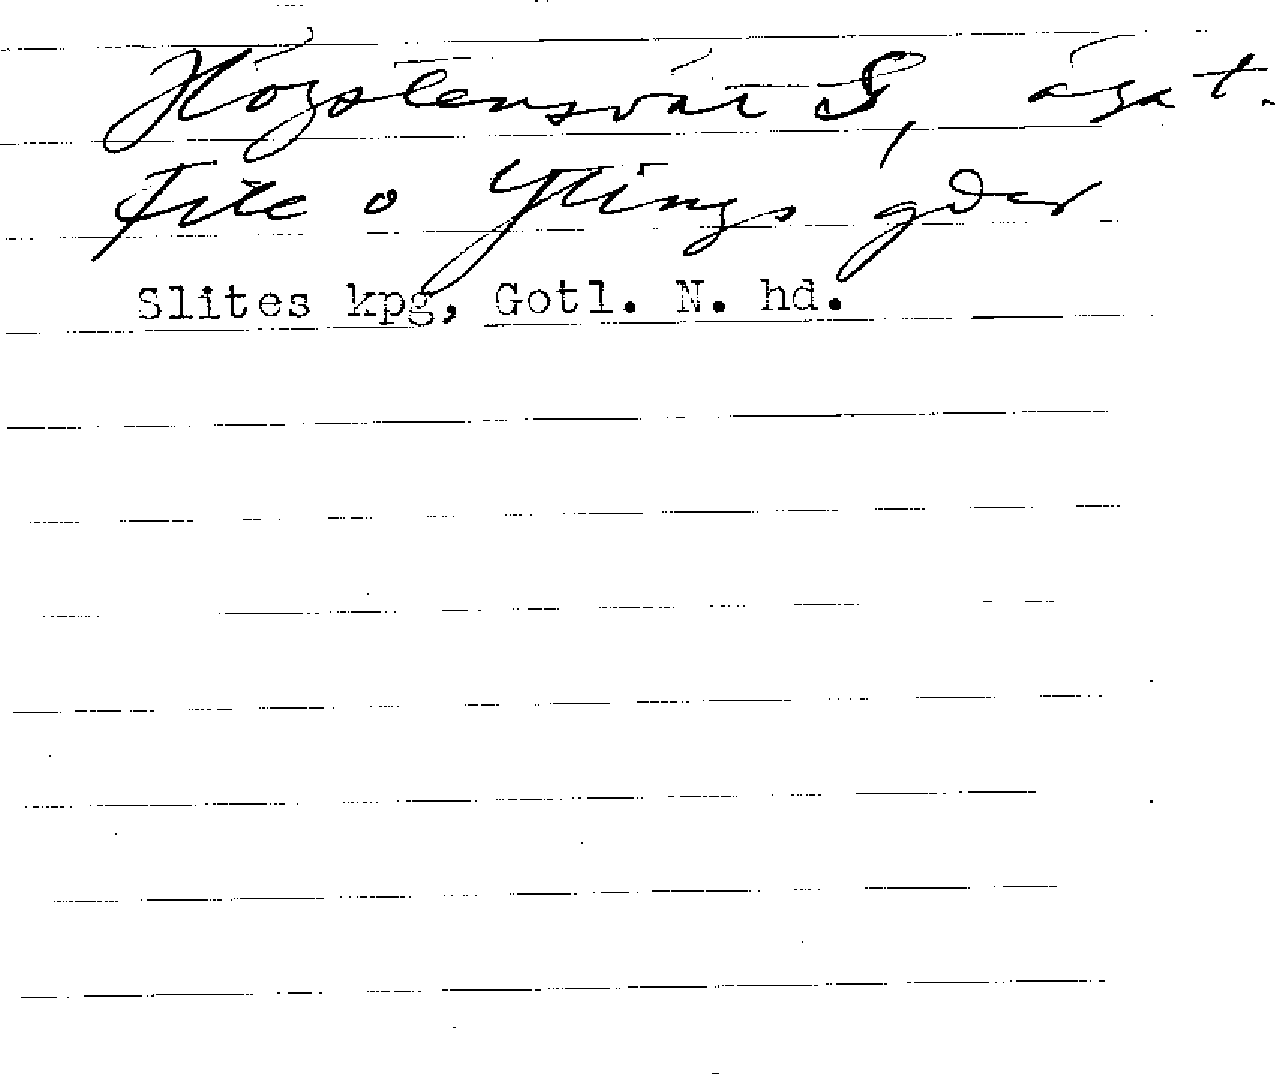 Högstensvät S, ägat.
File o Ytlings gder
Slites kpg, Gotl. N. hd.